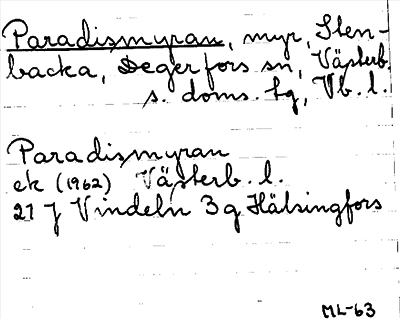 Paradismyran, myr, Sten-
backa, Degerfors sn, Västerb.
s. doms. hg, Vb. l.
Paradismyran
ek (1962) Västerb. l.
21 J Vindeln 3 g Hälsingfors
ML-63